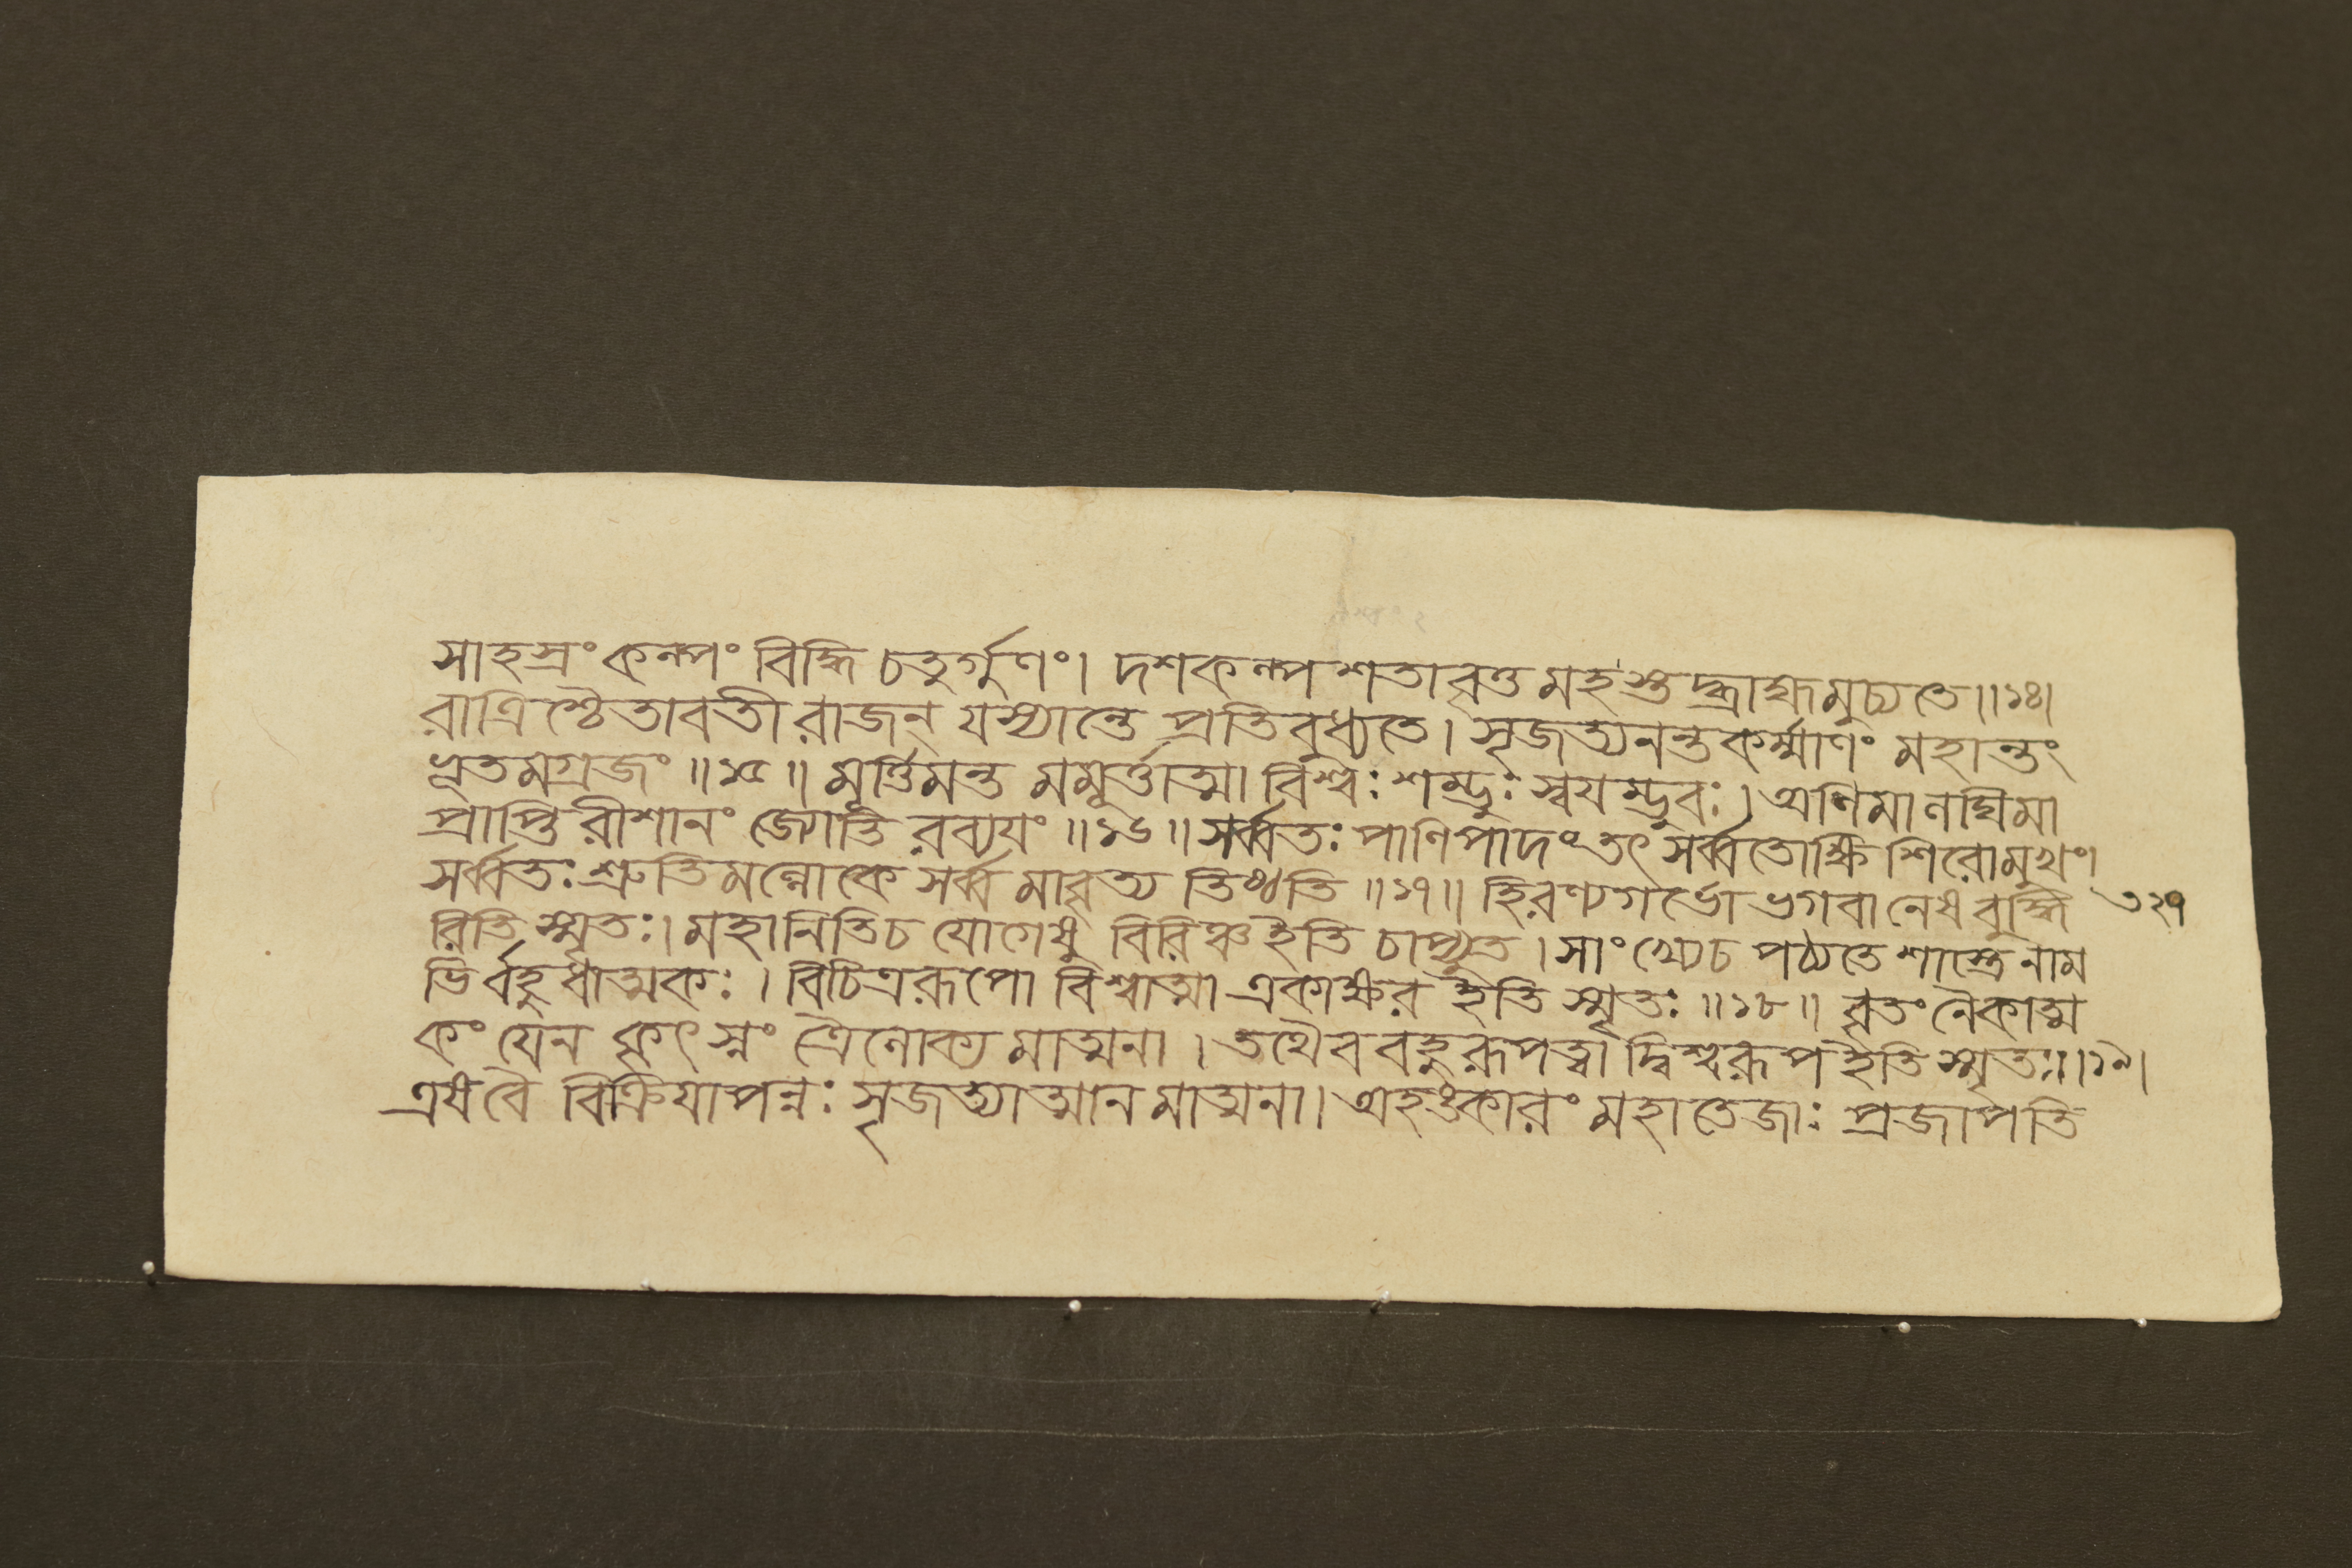 সাহস্রং কল্পং বিদ্ধি চতুর্গুণং। দশকল্পশতাবৃত্তমহস্তদ্ব্রাহ্মমুচ্যতে॥১৪।
রাত্রিশ্চৈতাবতী রাজন্ যস্যান্তে প্রতিবুধ্যতে। সৃজত্যনন্তকর্ম্মাণং মহান্তং
ভূতমগ্রজং॥১৫॥ মূর্ত্তিমন্ত মমূর্ত্তাত্মা বিশ্বং শম্ভুঃ স্বয়ম্ভুবঃ। অণিমা লঘিমা
প্রাপ্তি রীশানং জ্যোতি রব্যয়ং॥১৬॥ সর্ব্বতঃ পাণিপাদং তৎ সর্ব্বতোক্ষি শিরোমুখং।
সর্ব্বতঃ শ্রুতিমল্লোকে সর্ব্ব মাবৃত্য তিষ্ঠতি॥১৭॥ হিরণ্যগর্ভো ভগবানেষ বুদ্ধি
৩২৭
রিতি স্মৃতঃ। মহানিতিচ যোগেষু বিরিঞ্চ ইতি চাপ্যুত। সাংখ্যেচ পঠ্যতে শাস্ত্রে নাম
ভির্বহুধাত্মকঃ। বিচিত্ররূপো বিশ্বাত্মা একাক্ষর ইতি স্মৃতঃ॥১৮॥ বৃতং নৈকাত্ম
কং যেন কৃৎস্নং ত্রৈলোক্য মাত্মনা। তথৈব বহুরূপত্বা দ্বিশ্বরূপ ইতি স্মৃতঃ॥১৯।
এষ বৈ বিক্রিয়াপন্নঃ সৃজত্যাত্মান মাত্মনা। অহঙ্কারং মহাতেজাঃ প্রজাপতি